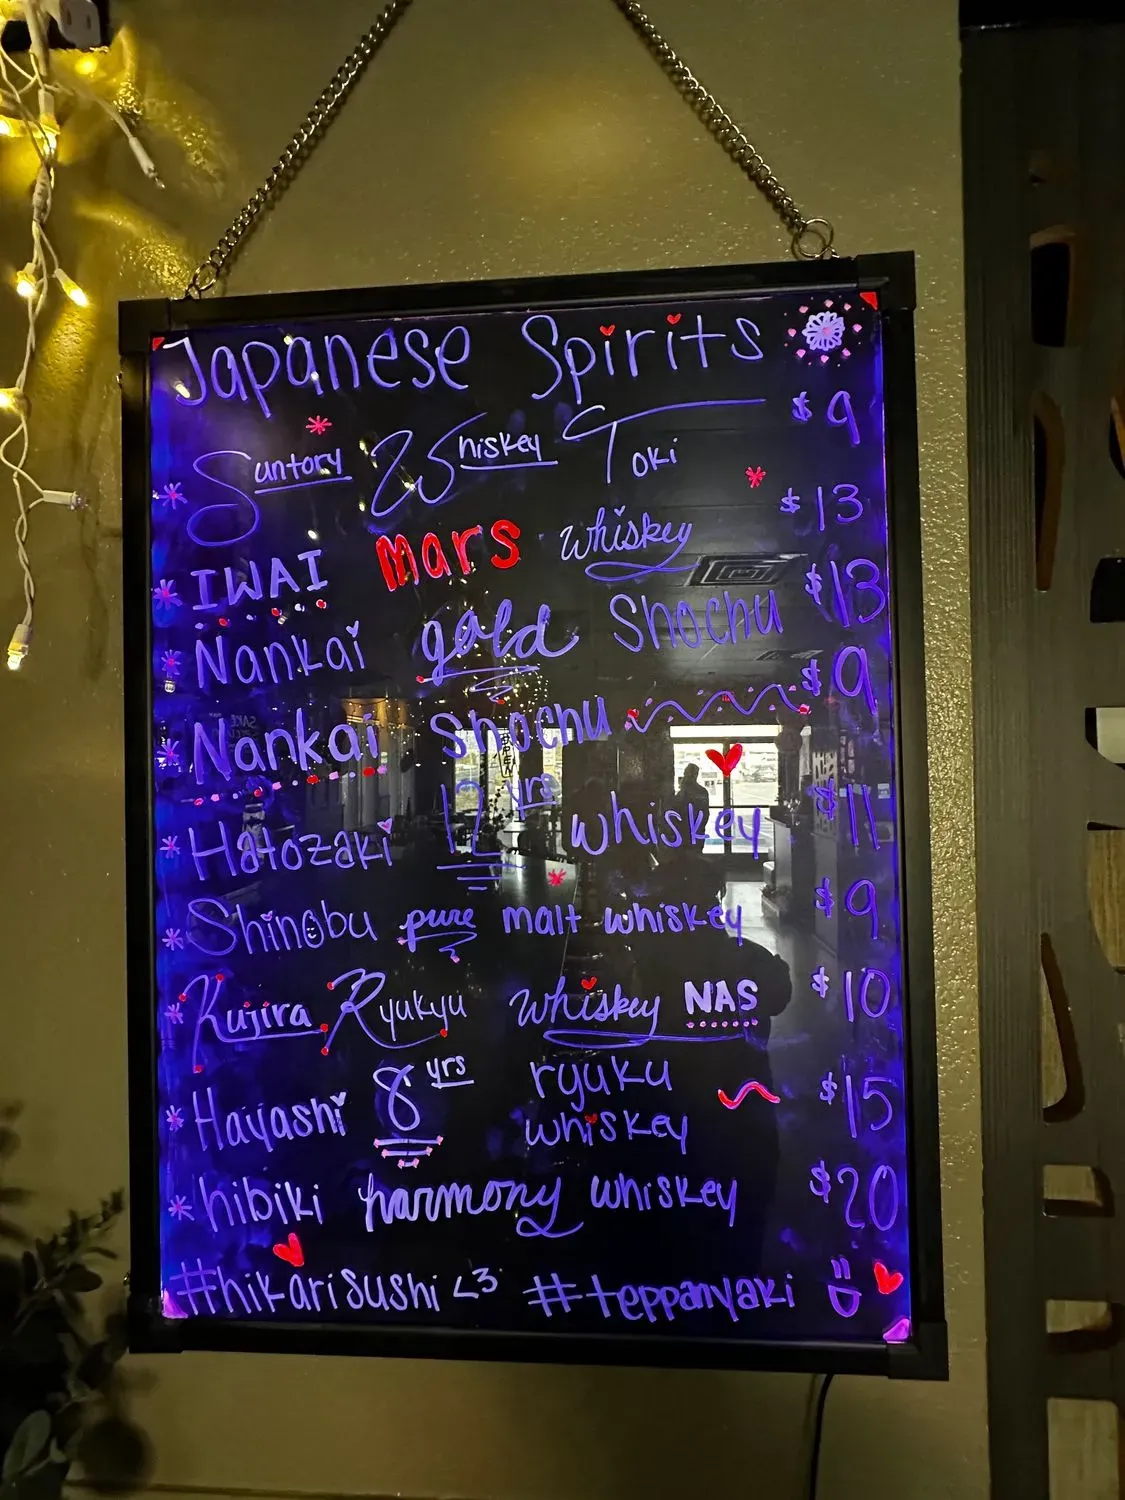 Japanese Spirits
Suntory Whiskey Toki $9
IWAI Mars whiskey $13
Nankai gold Shochu $13
Nankai Shochu $9
Hatozaki 12 yrs whiskey $11
Shinobu pure malt whiskey $9
Kujira Ryukyu whiskey NAS $10
Hayashi 8 yrs ryuku whiskey $15
hibiki harmony whiskey $20
#hikarisushi <3 #teppanyaki =D